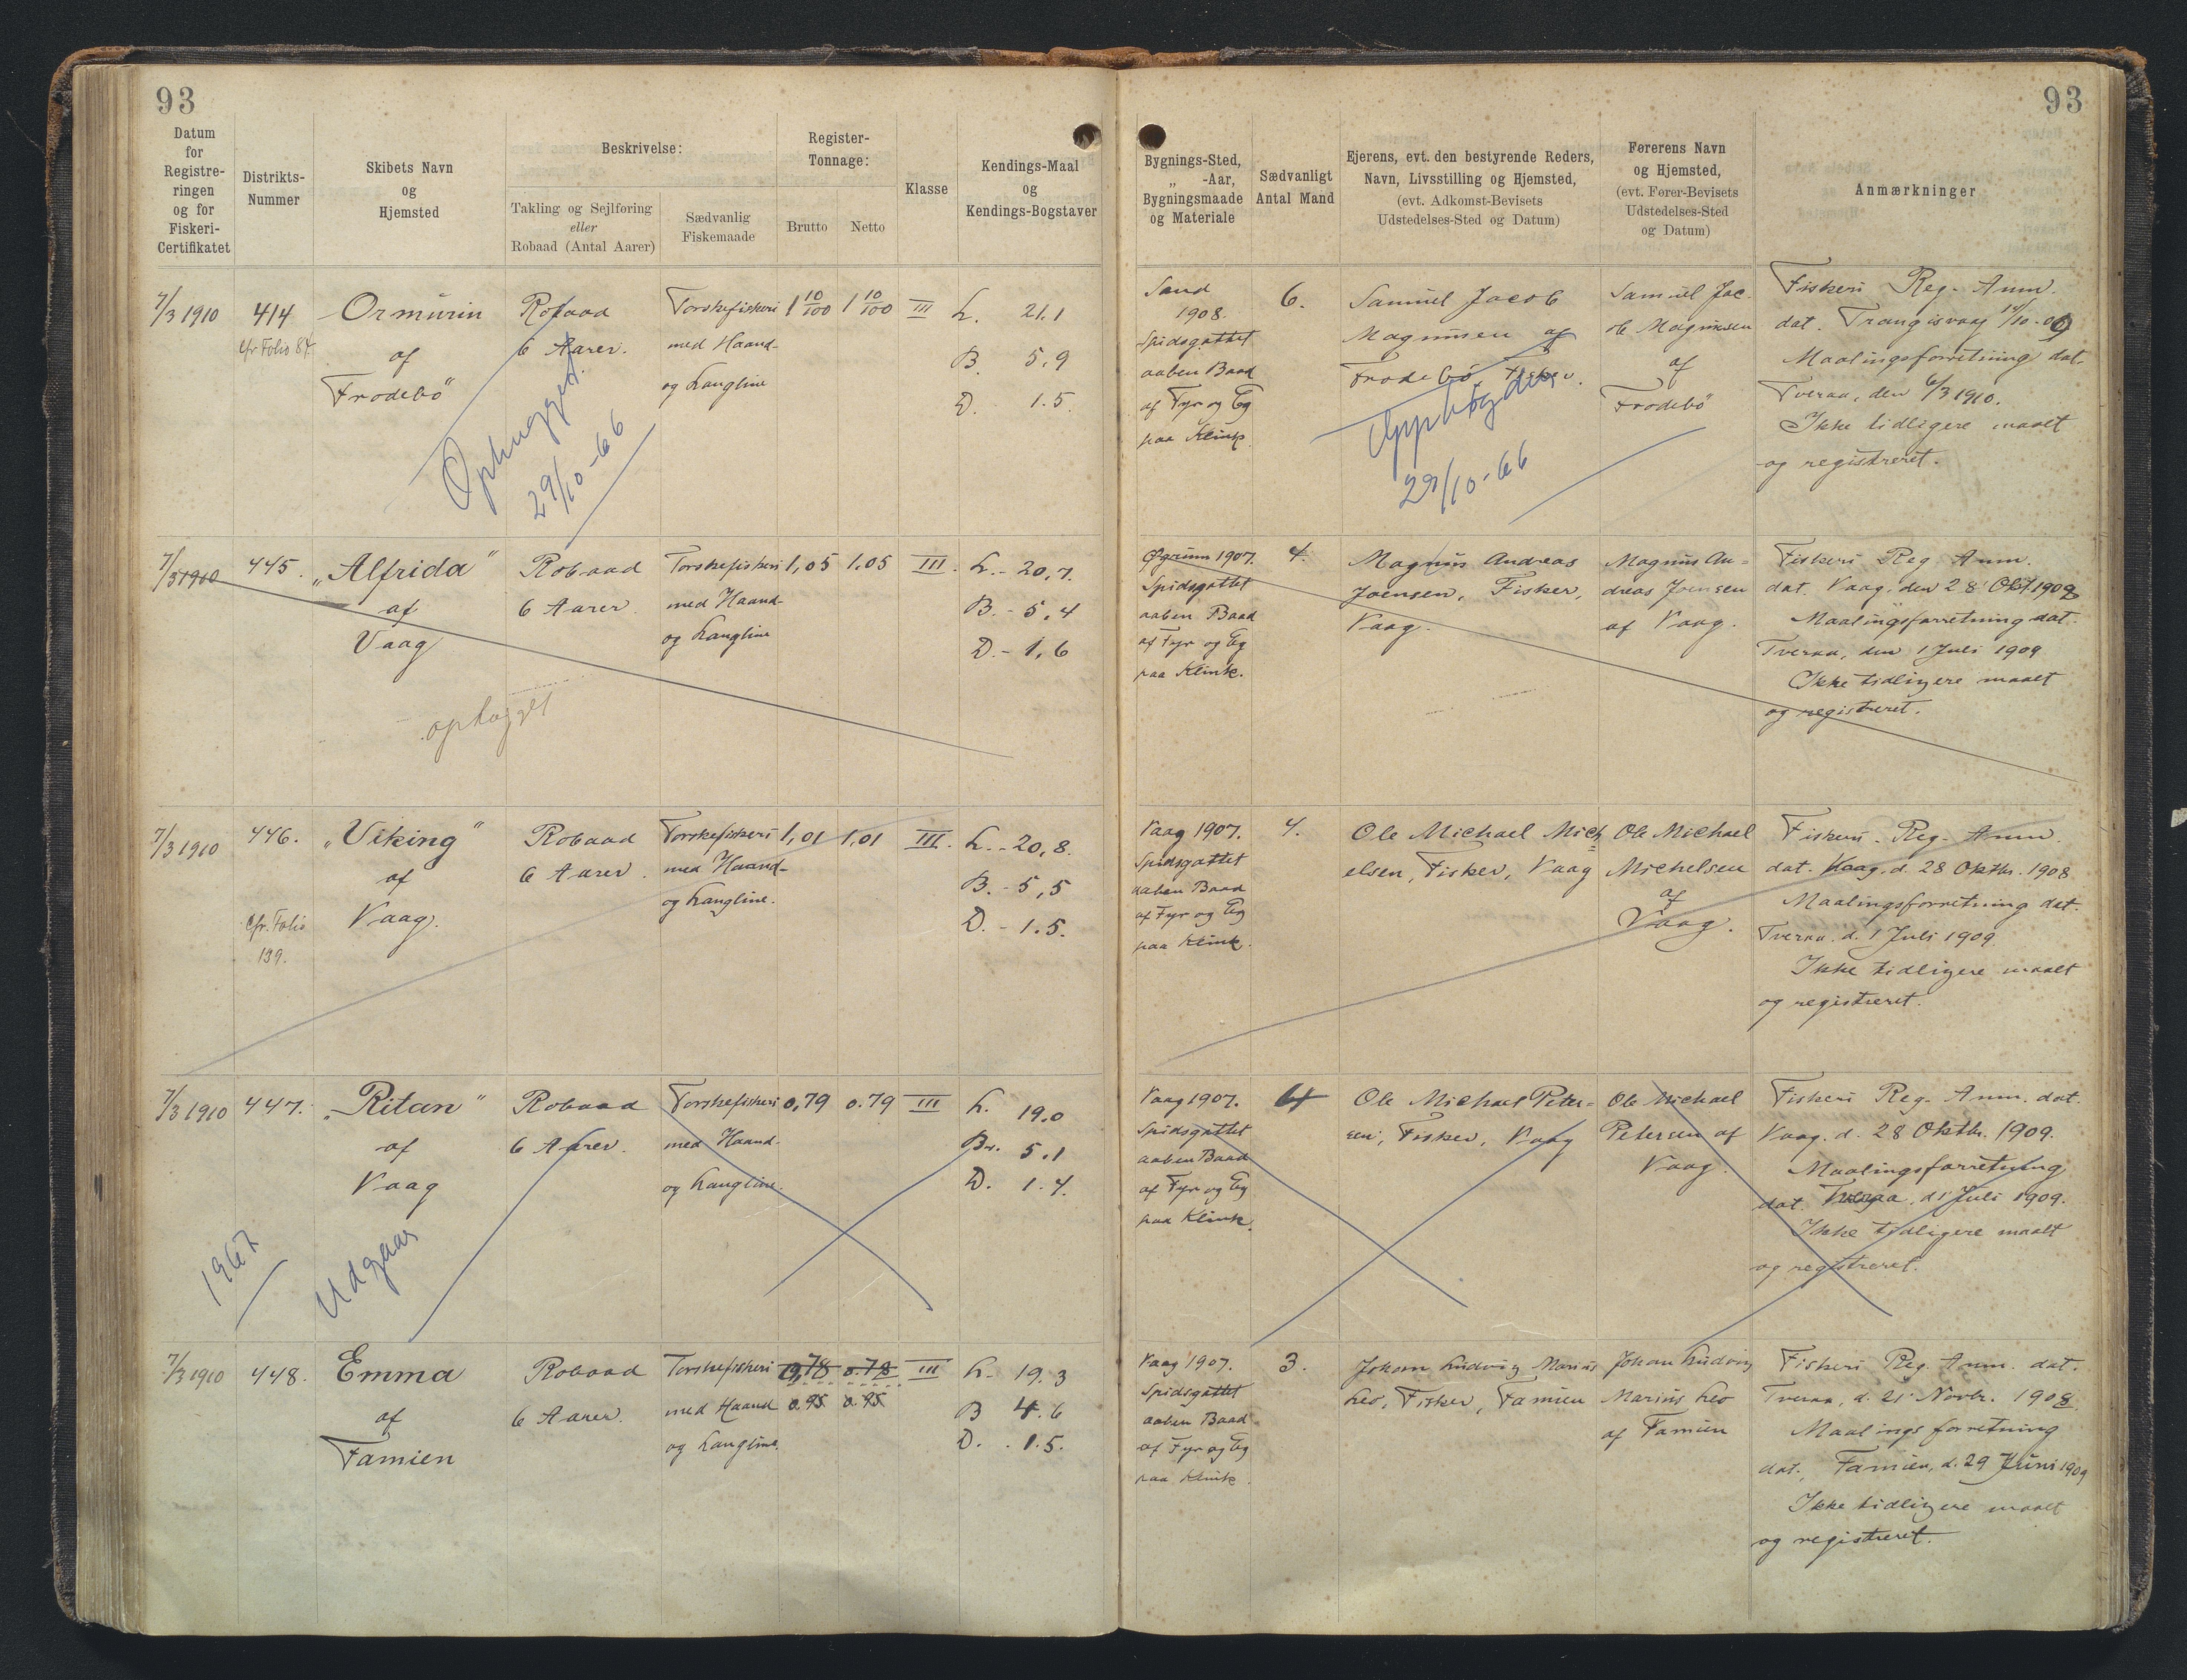 93
93
Datum
for
Registre-
ringen
og for
Fiskeri-
Certifikatet
Distrikts-
Nummer
Skibets Navn
og
Hjemsted
Beskrivelse:
Takling og Sejlføring
eller
Robaad (Antal Aarer)
Sædvanlig
Fiskemaade
Register-
Tonnage:
Brutto
Netto
Klasse
Kendings-Maal
og
Kendings-Bogstaver
Bygnings-Sted,
„ -Aar,
Bygningsmaade
og Materiale
Sædvanligt
Antal Mand
Ejerens, evt. den bestyrende Reders,
Navn, Livsstilling og Hjemsted,
(evt. Adkomst-Bevisets
Udstedelses-Sted og Datum)
Førerens Navn
og Hjemsted,
(evt. Fører-Bevisets
Udstedelses-Sted
og Datum)
Anmærkninger
7/3 1910
414
cfr Folio 84.
Ormurin
af
Frodebö
Robaad
6 Aarer.
Torskefiskeri
med Haand-
og Langline
1 10/100
1 10/100
III
L. 21.1
B. 5,9
D. 1.5.
Ophugget.
29/10-66
Sand
1908.
Spidsgattet
aaben Baad
af Fyr og Eg
paa Klink.
6.
Samuel Jacob
Magnusen af
Frodebö, Fisker.
29/10-66
Samuel Jac-
ob Magnusen
af
Frodebö
Fiskeri Reg. Anm.
dat. Trangisvaag
Maalingsforretning dat.
Tveraa, den 6/3 1910.
Ikke tidligere maalt
og registreret.
7/3 1910
445.
„Alfrida"
af
Vaag
ophugget
Robaad
6 Aarer.
Torskefiskeri
med Haand-
og Langline
1,05
1.05
III.
L. - 20,7.
B. - 5,4
D. - 1,6
1907.
Spidsgattet
aaben Baad
af Fyr og Eg
paa Klink.
4.
Magnus Andreas
Joensen, Fisker,
Vaag.
Magnus An-
dreas Joensen
af Vaag.
Fiskeri Reg Anm.
dat. Vaag. den 28 Okt. 1908
Maalingsforretning dat.
Tveraa, den 1 Juli 1909
Ikke tidligere maalt
og registreret.
7/3 1910
446.
cfr. Folio
139.
„Viking"
af
Vaag.
Robaad
6 Aarer.
Torskefiskeri
med Haand-
og Langline.
1,01
1,01
III.
L. - 20,8.
B. - 5,5
D. - 1.5.
Vaag 1907.
Spidsgattet
aaben Baad
af Fyr og Eg
paa Klink.
4.
Ole Michael Mich
elsen, Fisker, Vaag
Ole Michael
Michelsen
af
Vaag.
Fiskeri - Reg. Anm
dat. Vaag. d. 28 Oktbr. 1908
Maalingsforretning dat.
Tveraa. d. 1 Juli 1909
Ikke tidligere maalt
og registreret.
7/3 1910
447.
„Ritan"
af
Vaag
1967
Udgaar
Robaad
6 Aarer.
Torskefiskeri
med Haand-
og Langline.
0,79
0.79
III
L. 19.0
Br. 5.1
D. 1.4.
Vaag 1907.
Spidsgattet
aaben Baad
af Fyr og Eg
paa Klink.
4
Ole Michael Peter-
sen, Fisker, Vaag
Ole Michael
Petersen af
Vaag.
Fiskeri Reg. Anm. dat.
Vaag. d. 28 Oktbr. 1909.
Maalingsforretning
dat. Tveraa. d. 1 Juli 1909.
Ikke tidligere maalt
og registreret.
7/3 1910
448.
Emma
af
Famien
Robaad
6 Aarer.
Torskefiskeri
med Haand
og Langline.
0,78
0.95
0.78
0.95
III
L. 19.3
B 4.6
D. 1.5.
Vaag 1907.
Spidsgattet
aaben Baad
af Fyr og Eg
paa Klink.
3.
Johan Ludvig Marius
Leo, Fisker, Famien
Johan Ludvig
Marius Leo
af Famien
Fiskeri Reg. Anm. dat.
Tveraa, d. 21 Novbr. 1908.
Maalings forretning
dat. Famien, d. 29 Juni 1909
Ikke tidligere maalt
og registreret.